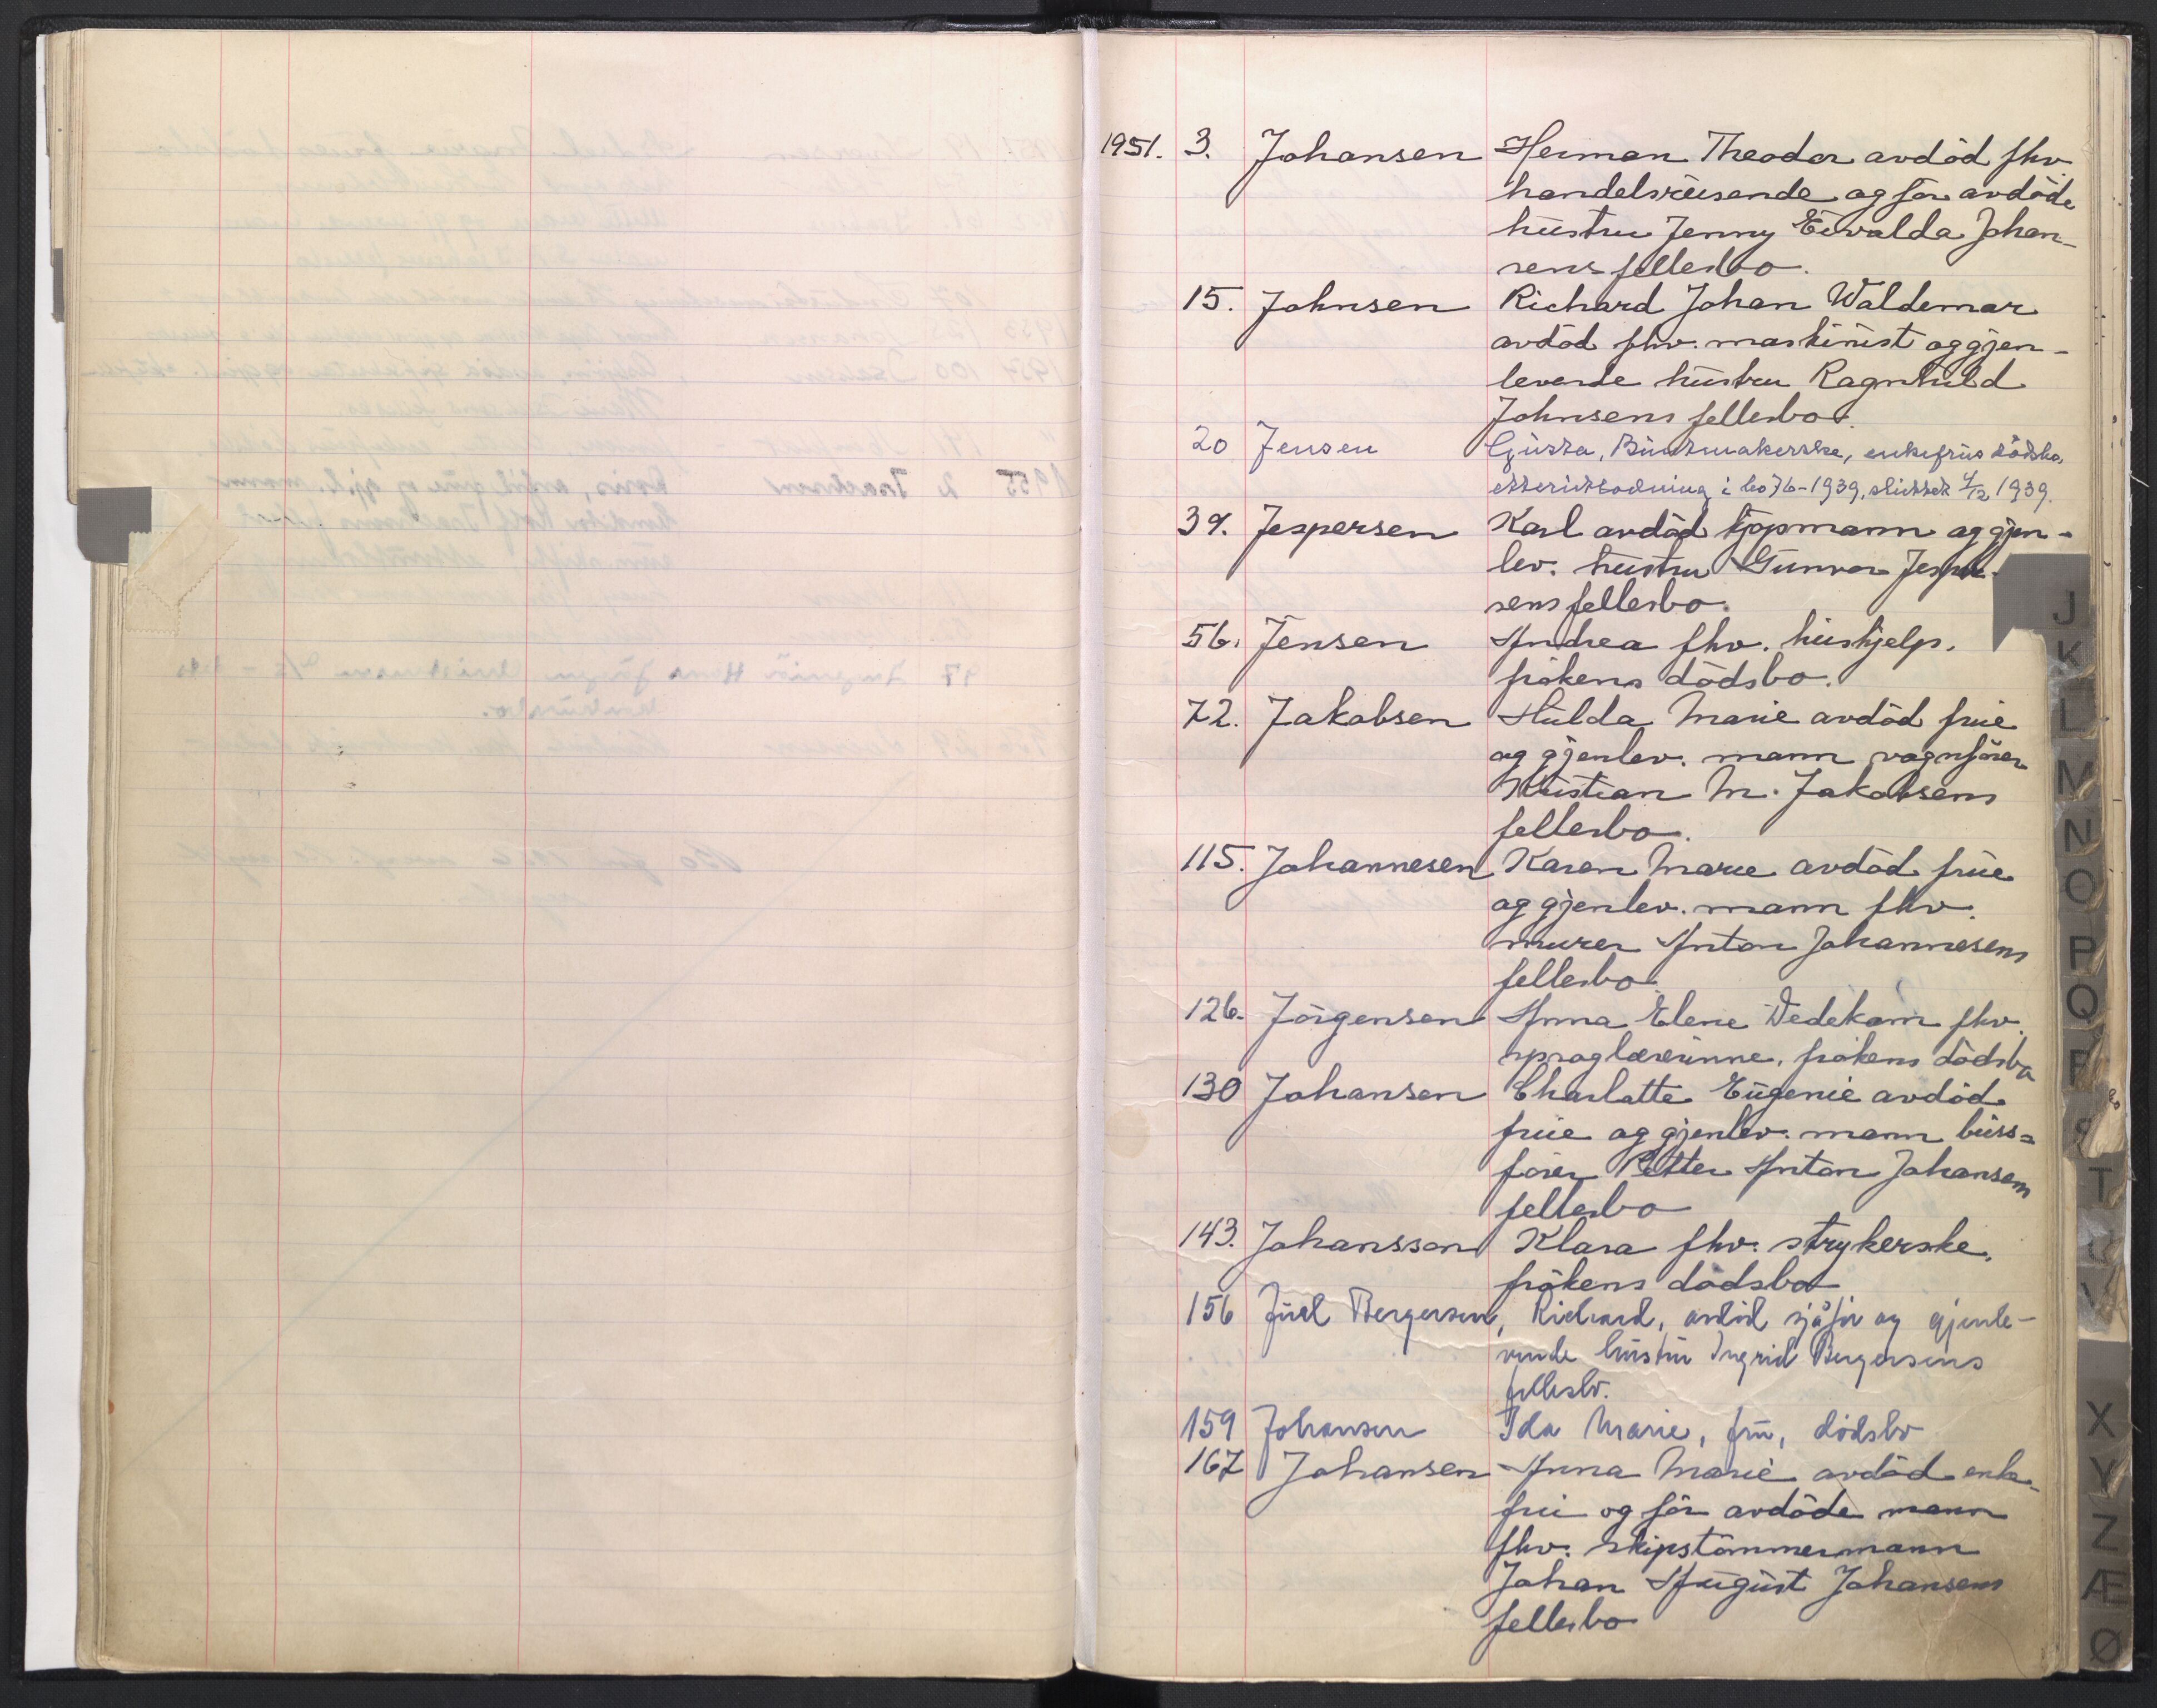 1951. 3. Johansen Herman Theodor avdöd fhv.
handelsreisende og før avdöde
hüstru Jenny Evalda Johan-
sens fellesbo.
15. Johnsen Richard Johan Waldemar
avdöd fhv. maskinist og gjen-
levende hüstru Ragnhild
Johnsens fellesbo.
20 Jensen Gusta, Buntmakerske, enkefrus dödsbo,
etterutlodning i bo 76-1939, sluttet 4/12 1939.
39. Jespersen Karl avdöd kjøpmann og gjen-
lev. hüstru Gunvor Jesper-
sens fellesbo.
56. Jensen Andrea fhv. hüshjelp.
frökens dödsbo.
72. Jakobsen Hülda Marie avdöd frue
og gjenlev. mann vognförer
Kristian M. Jakobsens
fellesbo.
115. Johannesen Karen Marie avdöd früe
og gjenlev. mann fhv.
murer Anton Johannesens
fellesbo
126. Jörgensen Anna Elene Dedekam fhv.
sproglærerinne, frökens dödsbo
130 Johansen Charlotte Eügenie avdöd
früe og gjenlev. mann büss=
förer Petter Anton Johansens
fellesbo
143. Johansson Klara fhv. strykerske,
frökens dödsbo
156 Juel Bergersen, Richard, avdöd sjåför og gjenle-
vende hüstru Ingrid Bergersens
fellesbo.
159 Johansen Ida Marie, frü, dödsbo
167 Johansen Anna Marie avdöd enke-
frü og för avdöde mann
fhv. skipstömmermann
Johan Aügüst Johansens
fellesbo
J
K
L
M
N
O
P
Q
R
S
T
U
V
X
Y
Z
Æ
Ø